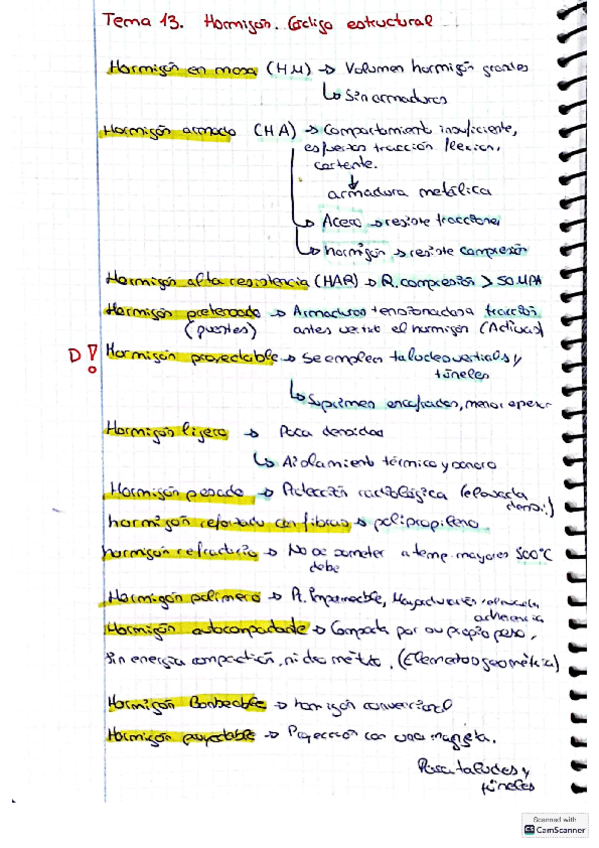 Tema 13. Hormigón. Código estructural
Hormigón en masa (HM) → Volumen hormigón grandes
↳ Sin armaduras
Hormigón armado (HA) → Comportamiento insuficiente,
esfuerzos tracción flexion,
cortante.
↓
armadura metálica
↳ Acero → resiste tracciones
↳ hormigón → resiste compresión
Hormigón alta resistencia (HAR) → R. compresión > 50 MPA
Hormigón pretensado → Armaduras tensionadas a tracción
(puentes) antes verter el hormigón (Activas)
D! Hormigón proyectable → Se emplea taludes verticales y
túneles
↳ Suprimen encofrados, menor
Hormigón ligero → Poca densidad
↳ Aislamiento térmico y sonoro
Hormigón pesado → Protección radiológica (elevada
densi.)
hormigón reforzado con fibras → polipropileno
hormigón refractario → No se someter a temp. mayores 500°C
debe
Hormigón polímero → Impermeable,
adherencia
Hormigón autocompactante → Compacta por su propio peso,
sin energía compactación, ni otro método. (Elementos geométrica)
Hormigón Bombeable → hormigón convencional
Hormigón proyectable → Proyección con una manguera.
Para taludes y
túneles
Scanned with
CS CamScanner